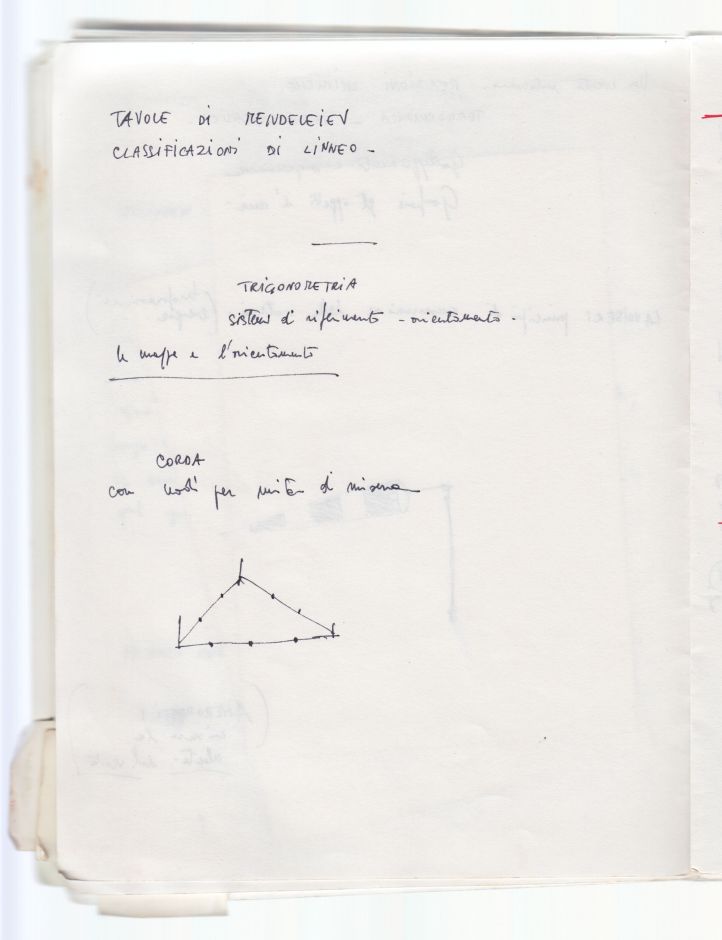 TAVOLE DI MENDELEIEV
CLASSIFICAZIONI DI LINNEO -
TRIGONOMETRIA
sistemi di riferimento - orientamento.
le mappe e l'orientamento
CORDA
con nodi per unità di misura